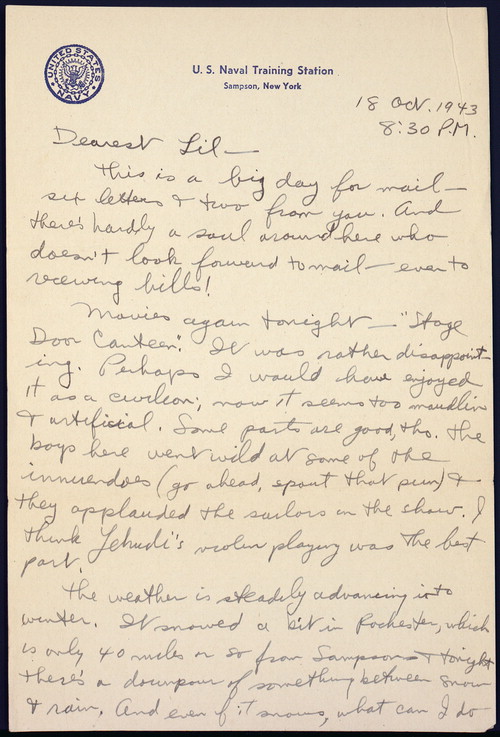 UNITED STATES NAVY
U. S. Naval Training Station
Sampson, New York
18 Oct. 1943
8:30 P.M.
Dearest Lil —
This is a big day for mail —
six letters & two from you. And
there's hardly a soul around here who
doesn't look forward to mail — even to
receiving bills!
Movies again tonight — "Stage
Door Canteen". It was rather disappoint-
ing. Perhaps I would have enjoyed
it as a civilian; now it seems too maudlin
& artificial. Some parts are good, tho. The
boys here went wild at some of the
innuendoes (go ahead, spout that pun) &
they applauded the sailors in the show. I
think Yehudi's violin playing was the best
part.
The weather is steadily advancing into
winter. It snowed a bit in Rochester, which
is only 40 miles or so from Sampson & tonight
there's a downpour of something between snow
& rain. And even if it snows, what can I do